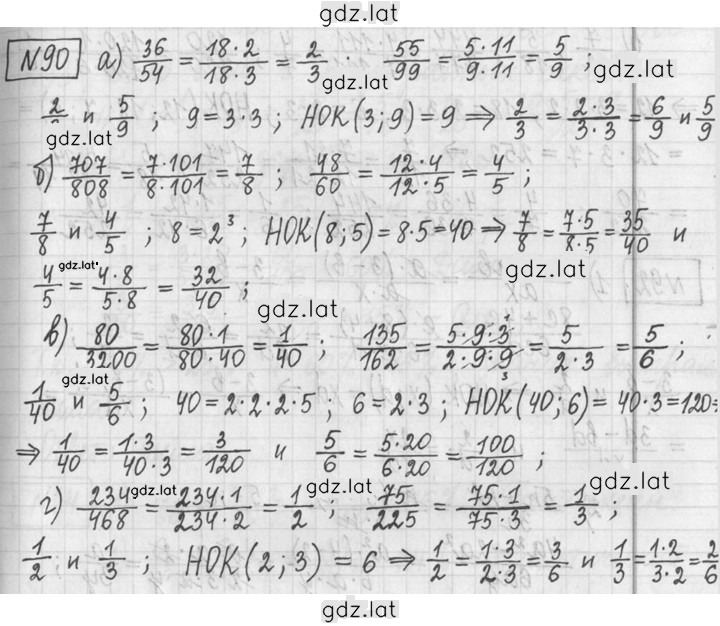 gdz.lat
N90 а) 36/54 = 18·2/18·3 = 2/3 ·· 55/99 = 5·11/9·11 = 5/9 ;
gdz.lat
2/ и 5/9 ; 9=3·3 ; НОК(3;9)=9 ⇒ 2/3 = 2·3/3·3 = 6/9 и 5/9
gdz.lat
б) 707/808 = 7·101/8·101 = 7/8 ; 48/60 = 12·4/12·5 = 4/5 ;
7/8 и 4/5 ; 8=2³; НОК(8;5)=8·5=40 ⇒ 7/8 = 7·5/8·5 = 35/40 и
gdz.lat gdz.lat
4/5 = 4·8/5·8 = 32/40 ;
gdz.lat
в) 80/3200 = 80·1/80·40 = 1/40 ; 135/162 = 5·9·3/2·9·9 = 5/2·3 = 5/6 ;
gdz.lat
1/40 и 5/6 ; 40=2·2·2·5 ; 6=2·3 ; НОК(40;6)=40·3=120
⇒ 1/40 = 1·3/40·3 = 3/120 и 5/6 = 5·20/6·20 = 100/120 ;
gdz.lat gdz.lat gdz.lat
г) 234/468 = 234·1/234·2 = 1/2 ; 75/225 = 75·1/75·3 = 1/3 ;
1/2 ; и 1/3 ; НОК(2;3) = 6 ⇒ 1/2 = 1·3/2·3 = 3/6 и 1/3 = 1·2/3·2 = 2/6
gdz.lat